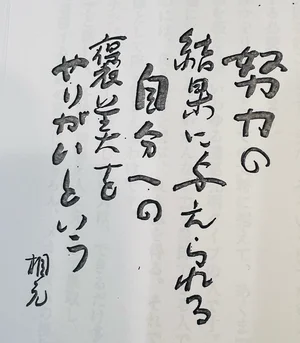 努力の
結果に与えられる
自分への
褒美を
やりがいという
相元